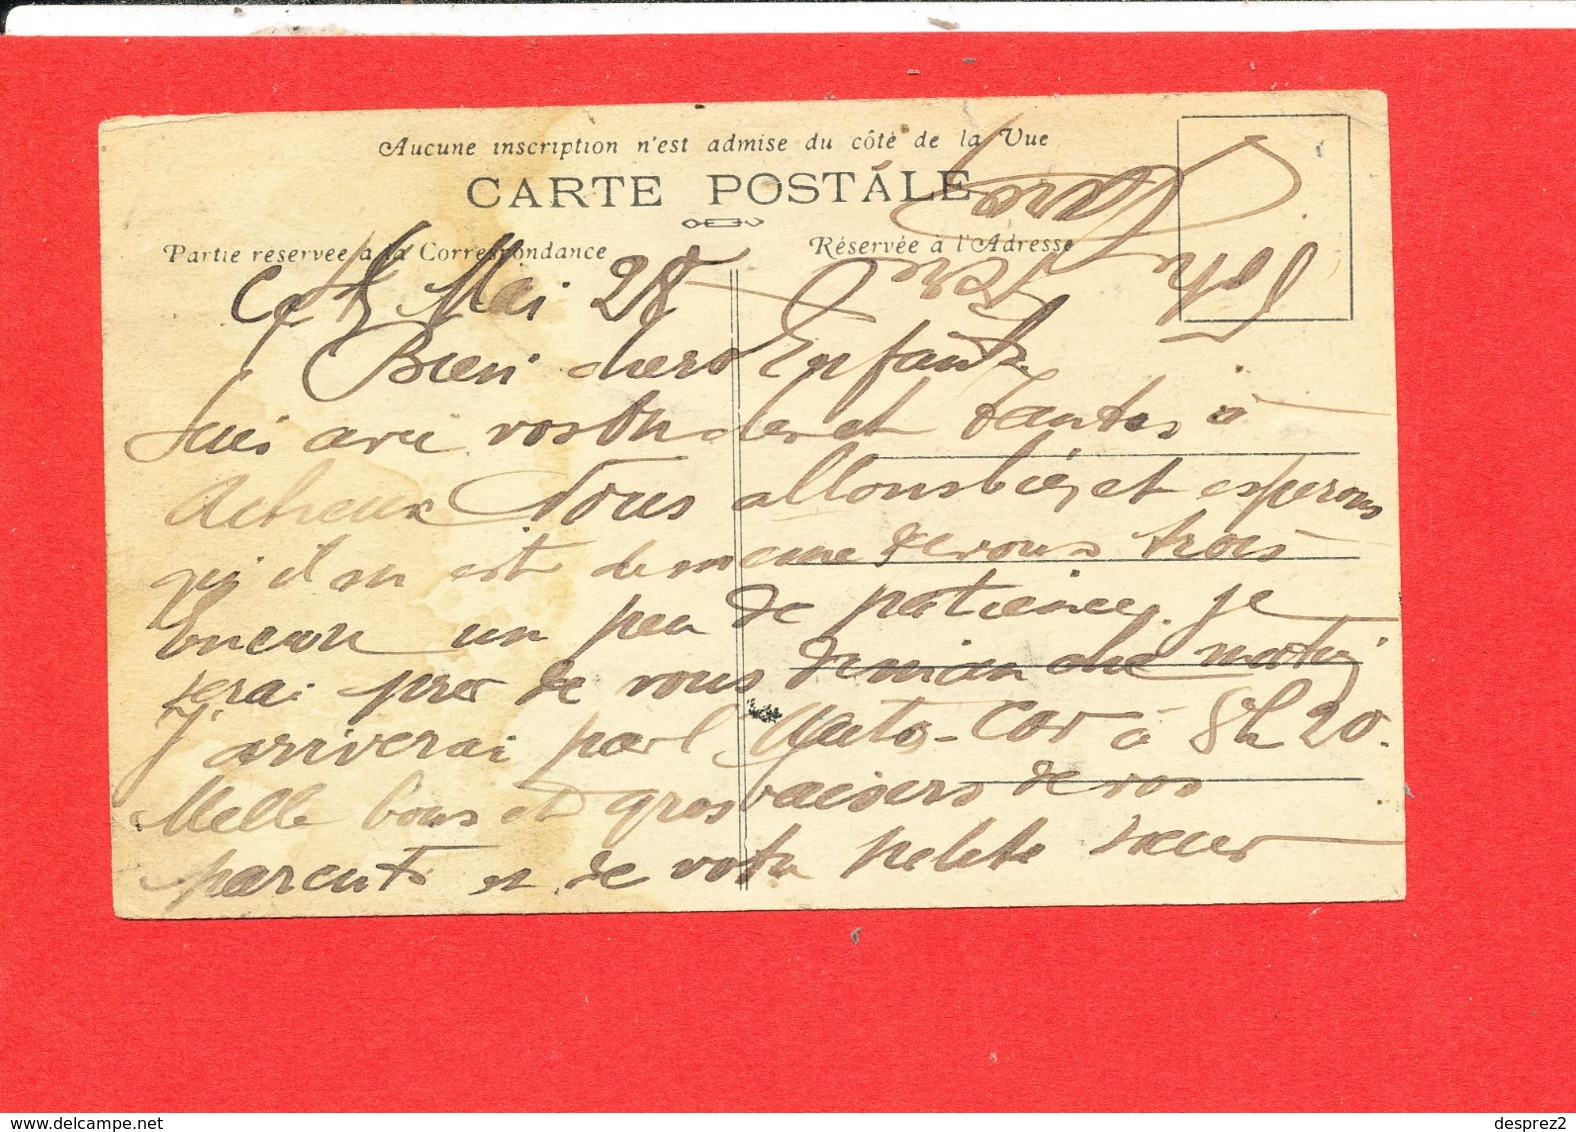 Aucune inscription n'est admise du côté de la Vue
CARTE POSTALE
Partie réservée à la Correspondance
Réservée à l'Adresse
Votre
Père
Ce 5 Mai 28
Bien chers Enfants
Suis avec vos Oncles et Tantes à
Acheux Nous allons bien et esperons
qu'il en est de meme de vous trois
encore un peu de patience je
serai près de vous demanche matin
J'arriverai par l'Auto-Car à 8h20.
Mille bons et gros baisers de vos
parents et de votre petite sœur
www.delcampe.net
desprez2